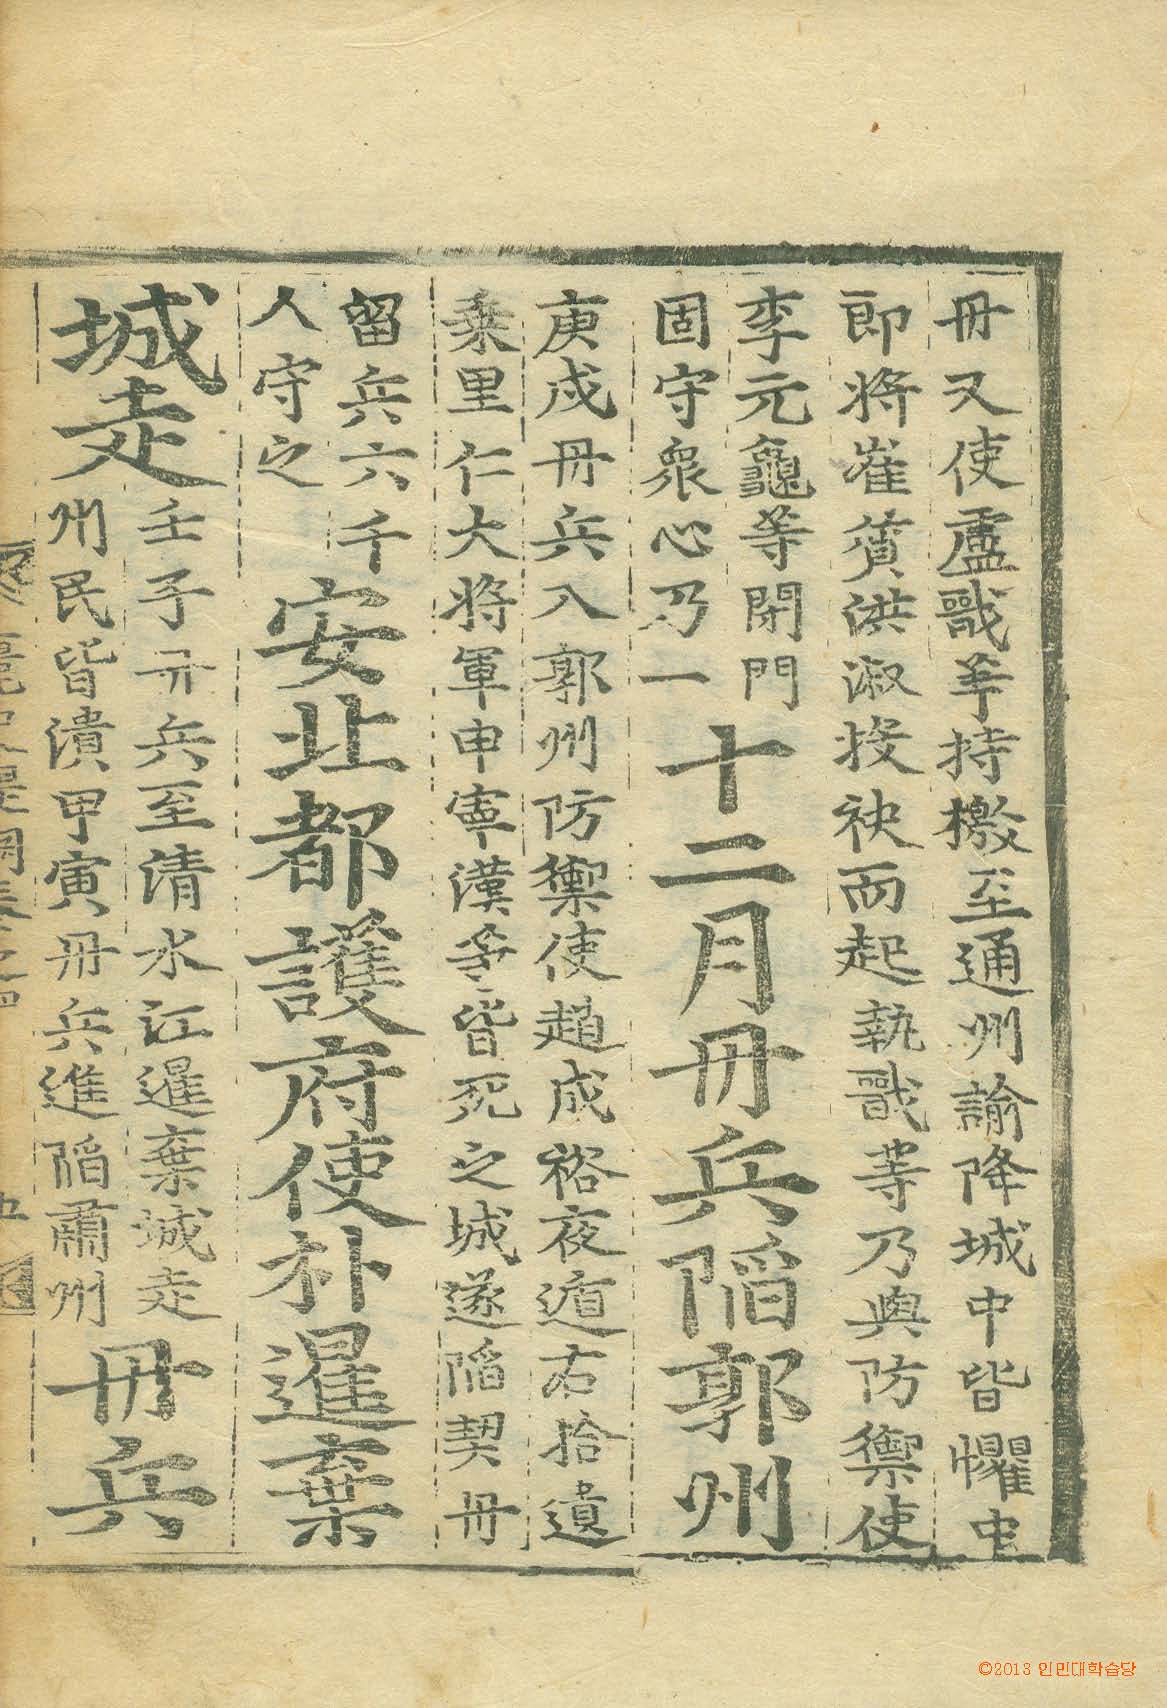 丹又使盧戩等持檄至通州諭降城中皆懼中
郎將崔質洪淑投袂而起執戩等乃與防禦使
李元龜等閉門
固守衆心乃一
十二月丹兵陷郭州
庚戌丹兵入郭州防禦使趙成裕夜遁右拾遺
乘里仁大將軍申寧漢等皆死之城遂陷契丹
留兵六千
人守之
安北都護府使朴暹棄
城走
壬子丹兵至清水江暹棄城走
州民皆潰甲寅丹兵進陷肅州
丹兵
©2013 인민대학습당